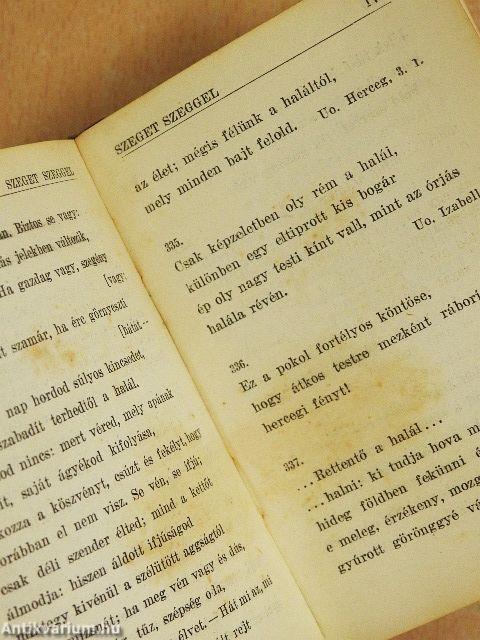 SZEGET SZEGGEL
an. Biztos se vagy:
ás jelekben változik,
Ha gazdag vagy, szegény
[vagy;
t szamár, ha érc görnyeszti
[hátát.—
nap hordod súlyos kincsedet,
szabadít terhedtől a halál.
od nincs: mert véred, mely apának
ít, saját ágyékod kifolyása,
kozza a köszvényt, csúzt és fekélyt, hogy
orábban el nem visz. Se vén, se ifjú;
csak déli szender élted; mind a kettőt
álmodja: hiszen áldott ifjúságod
egy kivénül a szélütött aggságtól
ha meg vén vagy és dús,
tűz, szépség o-la,
élvet.—Hát mi az, mi
rejt
SZEGET SZEGGEL
az élet; mégis félünk a haláltól,
mely minden bajt felold. Uo. Herceg, 3. 1.
335.
Csak képzeletben oly rém a halál,
különben egy eltiprott kis bogár
ép oly nagy testi kint vall, mint az órjás
halála révén. Uo. Izabell
336.
Ez a pokol fortélyos köntöse,
hogy átkos testre mezként ráborí
hercegi fényt!
337.
...Rettentő a halál...
...halni: ki tudja hova m
hideg földben fekünni é
e meleg, érzékeny, mozg
gyúrott göröngyé vá
Antikvarium.hu